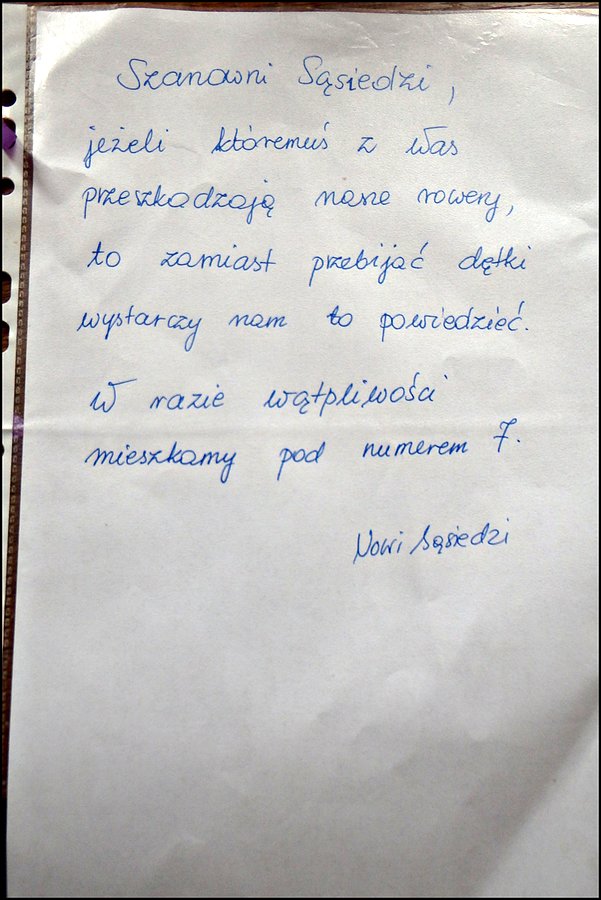 Szanowni Sąsiedzi,
jeżeli któremuś z Was
przeszkadzają nasze rowery,
to zamiast przebijać dętki
wystarczy nam to powiedzieć.
W razie wątpliwości
mieszkamy pod numerem 7.
Nowi Sąsiedzi